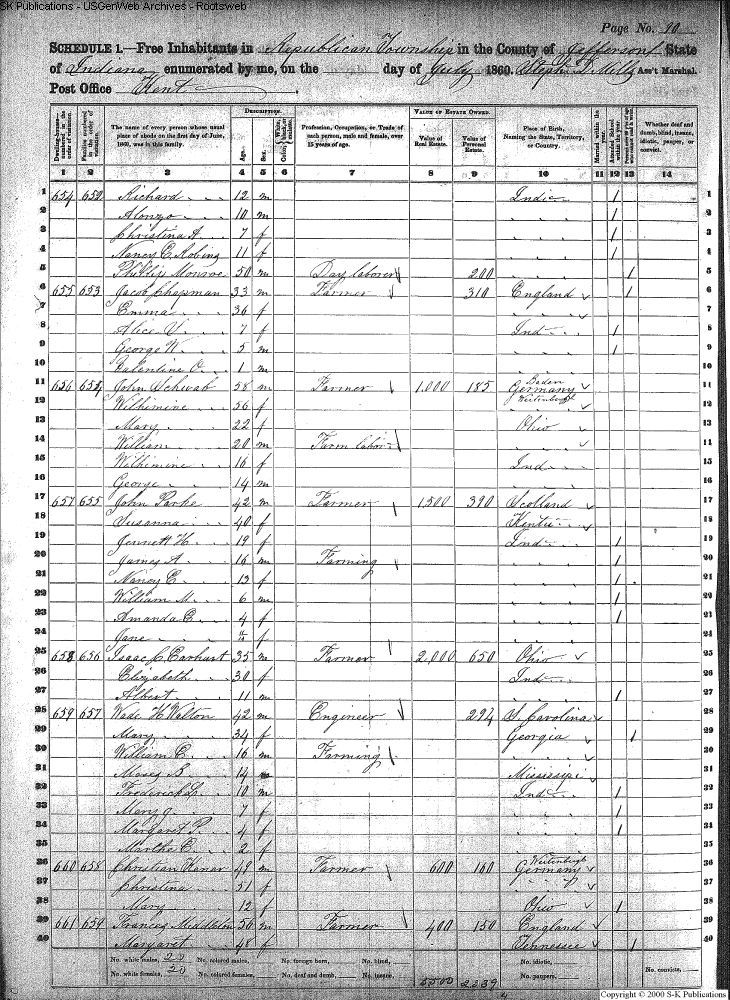 S-K Publications - USGenWeb Archives - Rootsweb
Page No. 90
SCHEDULE 1.—Free Inhabitants in Republican Township in the County of Jefferson State
of Indiana enumerated by me, on the day of July 1860. Mills Ass't Marshal.
Post Office Kent
Dwelling-houses— numbered in the order of visitation.
Families numbered in the order of visitation.
The name of every person whose usual place of abode on the first day of June, 1860, was in this family.
DESCRIPTION.
Age.
Sex.
Color, White, black, or mulatto.
Profession, Occupation, or Trade of each person, male and female, over 15 years of age.
VALUE OF ESTATE OWNED.
Value of Real Estate.
Value of Personal Estate.
Place of Birth, Naming the State, Territory, or Country.
Married within the year.
Attended School within the year.
Whether deaf and dumb, blind, insane, idiotic, pauper, or convict.
1 2 3 4 5 6 7 8 9 10 11 12 13 14
1 654 652 Richard 12 m Indi 1 1
2 Alonzo 10 m 1 2
3 Christina A 7 f 1 3
4 Nancy C. Robing 11 f 1 4
5 Phillip Monroe 50 m Day laborer 200 1 5
6 655 653 Jacob Chapman 33 m Farmer 310 England 1 6
7 Emma 36 f 7
8 Alice V. 7 f Ind 1 8
9 George W. 5 m 1 9
10 Valentine O. 1 m 10
11 656 654 John Schwab 58 m Farmer 1,000 185 Baden Germany 11
12 Wilhimine 56 f Weitenburgh 12
13 Mary 22 f Ohio 13
14 William 20 m Farm labor 14
15 Wilhimine 16 f Ind 15
16 George 14 m 16
17 657 655 John Parke 42 m Farmer 1,500 390 Scotland 17
18 Susanna 40 f Kentu 18
19 Jennett H. 19 f Ind 1 19
20 James A. 16 m Farming 1 20
21 Nancy E. 13 f 1 21
22 William M. 6 m 1 22
23 Amanda E. 4 f 1 23
24 Jane f 24
25 658 656 Isaac C Earhart 35 m Farmer 2,000 650 Ohio 25
26 Elizabeth 30 f Ind 26
27 Albert 11 m 1 27
28 659 657 Wade H Walton 42 m Engineer 294 S. Carolina 28
29 Mary 34 f Georgia 1 29
30 William C. 16 m Farming 30
31 Moses B 14 m Mississipi 31
32 Frederick L. 10 m Ind 1 32
33 Mary J. 7 f 1 33
34 Margaret P. 4 f 1 34
35 Martha E. 2 f 35
36 660 658 Christian Kanar 49 m Farmer 600 160 Weitenburgh Germany 36
37 Christina 51 f 37
38 Mary 12 f Ohio 1 38
39 661 659 Frances Middleton 56 m Farmer 400 150 England 39
40 Margaret 48 f Tennessee 1 40
No. white males, 20 No. colored males, No. foreign born, No. blind, No. idiotic,
No. white females, 20 No. colored females, No. deaf and dumb, No. insane, 5500 2339 No. paupers, No. convicts,
Copyright © 2000 S-K Publications